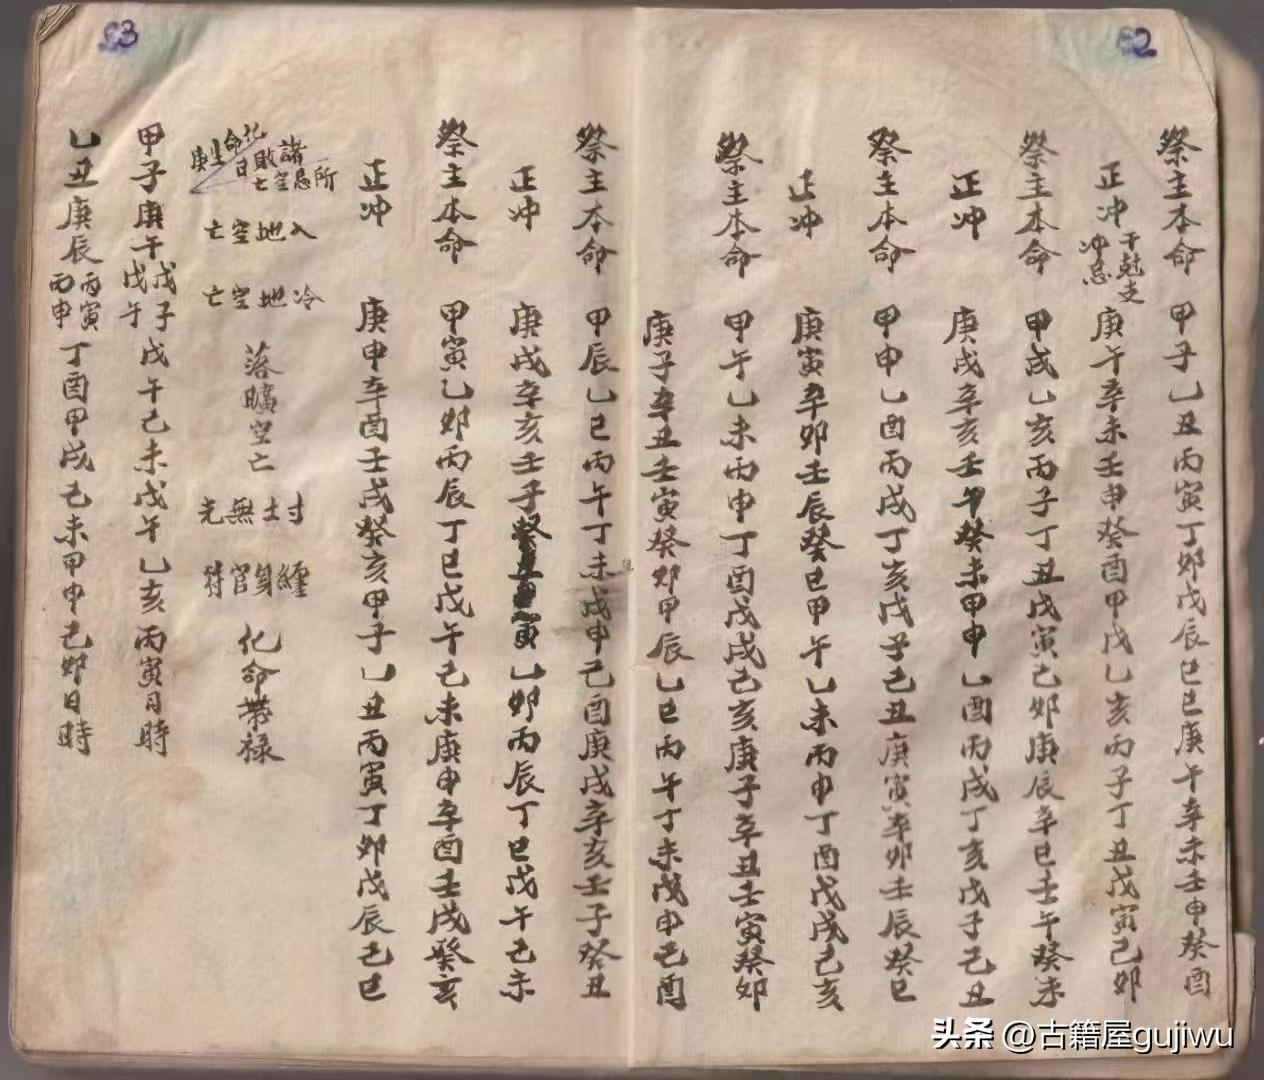 52
祭主本命 甲子乙丑丙寅丁卯戊辰己巳庚午辛未壬申癸酉
正冲 干尅支冲忌 庚午辛未壬申癸酉甲戌乙亥丙子丁丑戊寅己卯
祭主本命 甲戌乙亥丙子丁丑戊寅己卯庚辰辛巳壬午癸未
正冲 庚戌辛亥壬午癸未甲申乙酉丙戌丁亥戊子己丑
祭主本命 甲申乙酉丙戌丁亥戊子己丑庚寅辛卯壬辰癸巳
正冲 庚寅辛卯壬辰癸巳甲午乙未丙申丁酉戊戌己亥
祭主本命 甲午乙未丙申丁酉戊戌己亥庚子辛丑壬寅癸卯
庚子辛丑壬寅癸卯甲辰乙巳丙午丁未戊申己酉
53
祭主本命 甲辰乙巳丙午丁未戊申己酉庚戌辛亥壬子癸丑
正冲 庚戌辛亥壬子癸丑寅乙卯丙辰丁巳戊午己未
祭主本命 甲寅乙卯丙辰丁巳戊午己未庚申辛酉壬戌癸亥
正冲 庚申辛酉壬戌癸亥甲子乙丑丙寅丁卯戊辰己巳
所忌諸空亡敗日 化命生庚 入地空亡 冷地空亡 落曠空亡 封土無光 纏身官符 化命帶祿
甲子庚午戊子戊午戊午己未戊午乙亥丙寅日時
乙丑庚辰丙寅丙申丁酉甲戌己未甲申己卯日時
头条 @古籍屋gujiwu